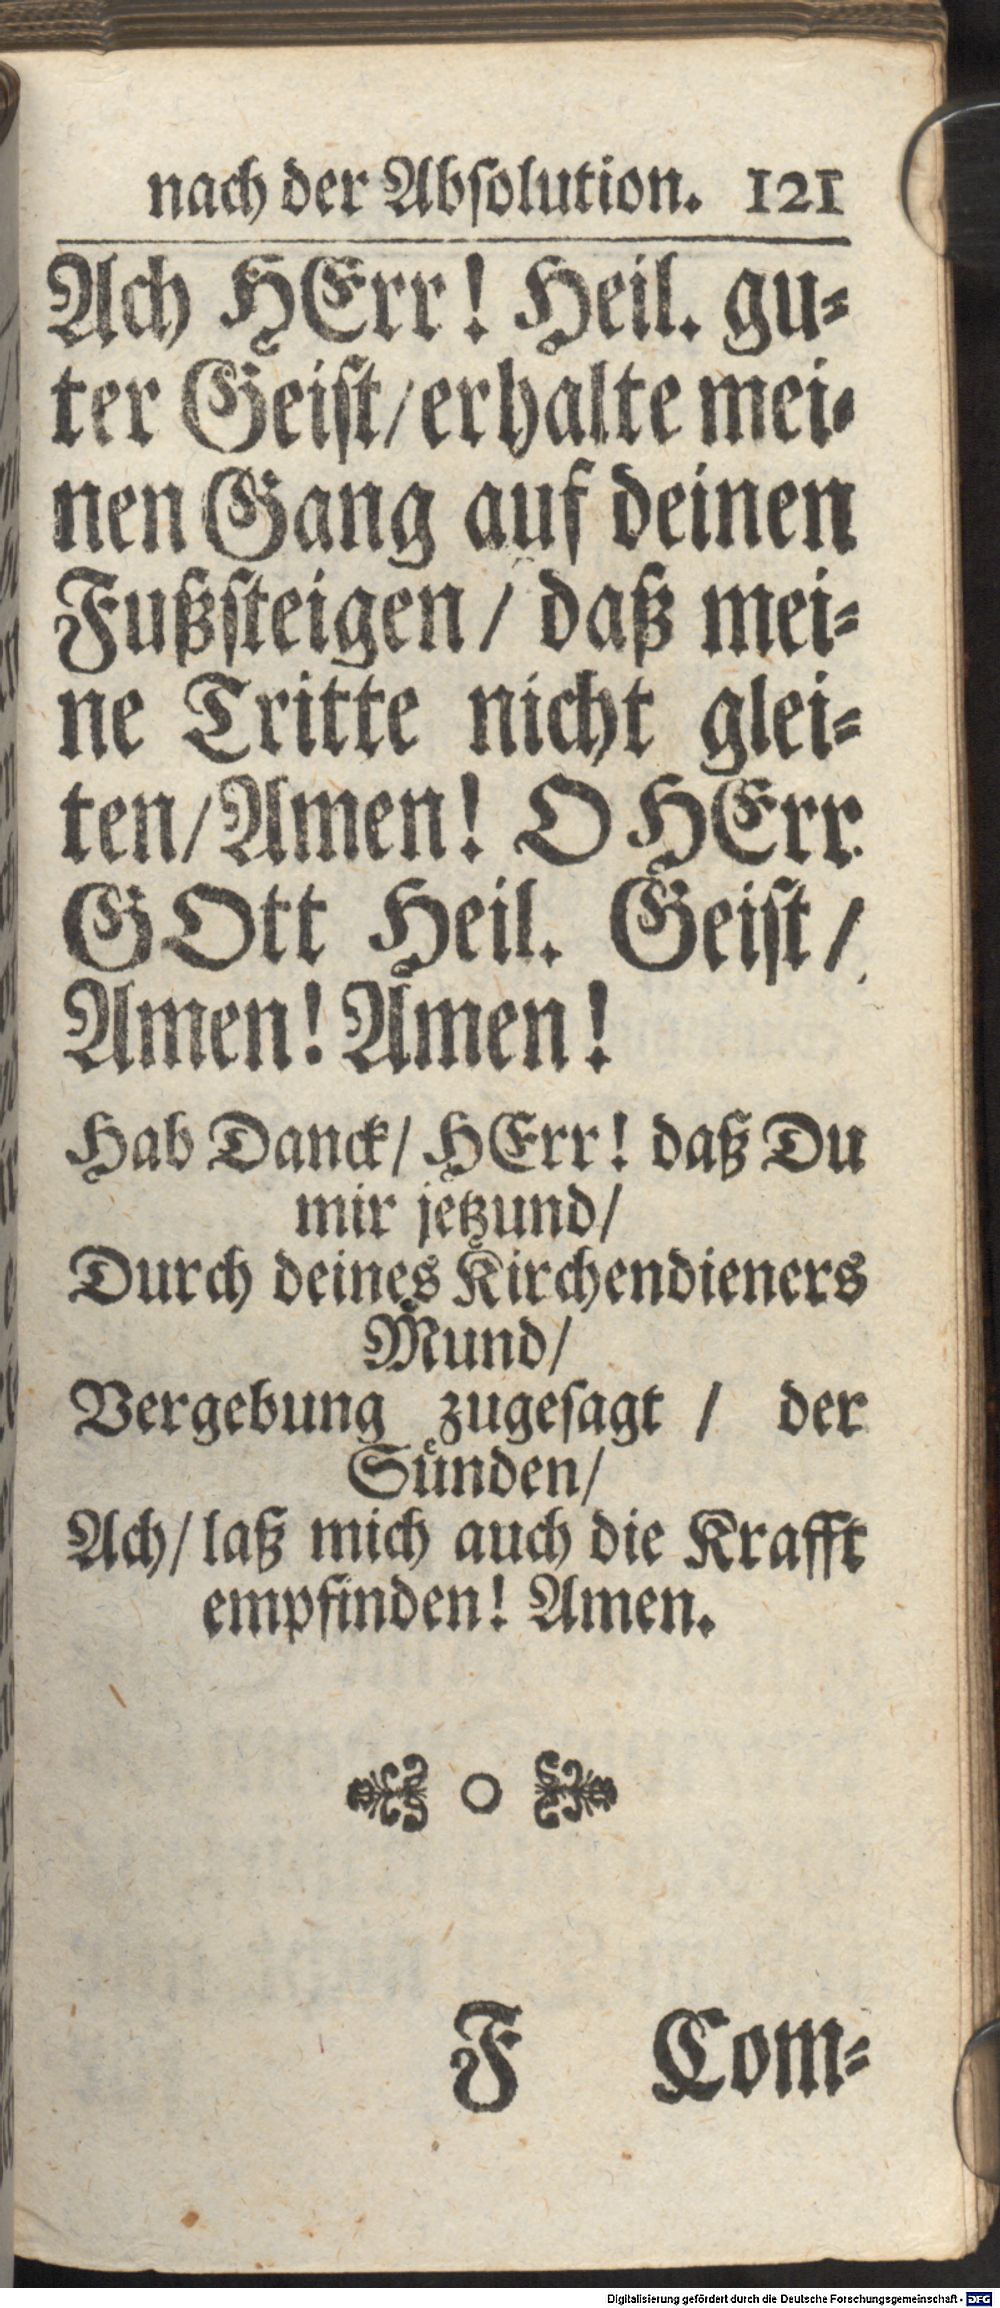 nach der Absolution. 121
Ach HErr! Heil. gu-
ter Geist/ erhalte mei-
nen Gang auf deinen
Fußsteigen/ daß mei-
ne Tritte nicht glei-
ten/ Amen! O HErr
GOtt Heil. Geist/
Amen! Amen!
Hab Danck/ HErr! daß Du
mir jetzund/
Durch deines Kirchendieners
Mund/
Vergebung zugesagt / der
Sünden/
Ach/ laß mich auch die Krafft
empfinden! Amen.
F Com-
Digitalisierung gefördert durch die Deutsche Forschungsgemeinschaft - DFG